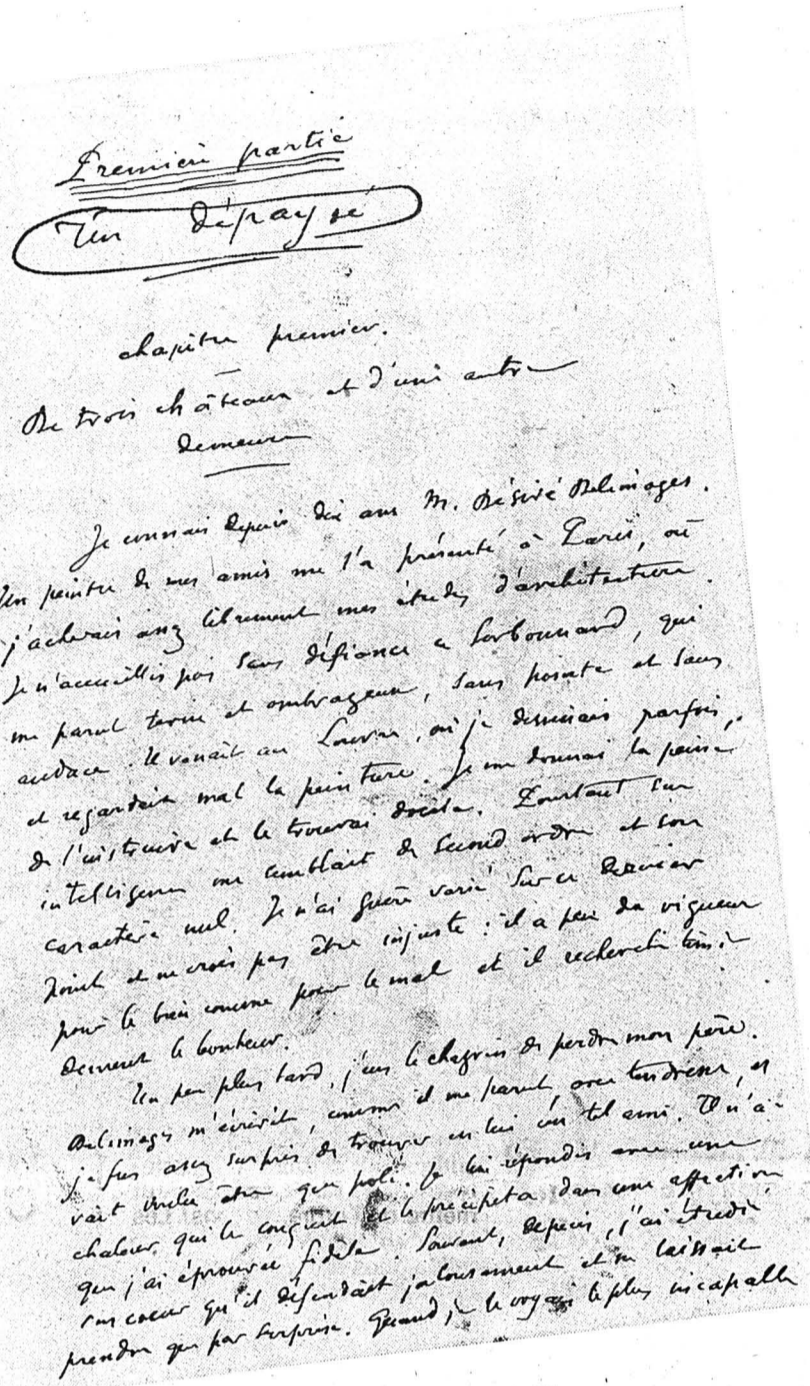 Première partie
Un dépaysé
chapitre premier.
De trois châteaux et d'une autre
demeure
Je connais depuis dix ans M. Désiré Delimoges.
Un peintre de mes amis me l'a présenté à Paris, où
j'achevais assez librement mes études d'architecture.
Je n'accueillis pas sans défiance ce Sorbonnard, qui
me parut terne et ombrageux, sans pointe et sans
audace. Il venait au Louvre, où je dessinais parfois,
et regardait mal la peinture. Je me donnai la peine
de l'instruire et le trouvai docile. Pourtant son
intelligence me semblait de second ordre et son
caractère nul. Je n'ai guère varié sur ce dernier
point et ne crois pas être injuste : il a peu de vigueur
pour le bien comme pour le mal et il recherche timi-
dement le bonheur.
Un peu plus tard, j'eus le chagrin de perdre mon père.
Delimoges m'écrivit, comme il me parut, avec tendresse, et
je fus assez surpris de trouver en lui un tel ami. Il n'a-
vait voulu être que poli. Je lui répondis avec une
chaleur qui le conquit et le précipita dans une affection
que j'ai éprouvée fidèle. Souvent, depuis, j'ai étudié
son coeur qu'il défendait jalousement et ne laissait
prendre que par surprise. Quand je le voyais le plus incapable